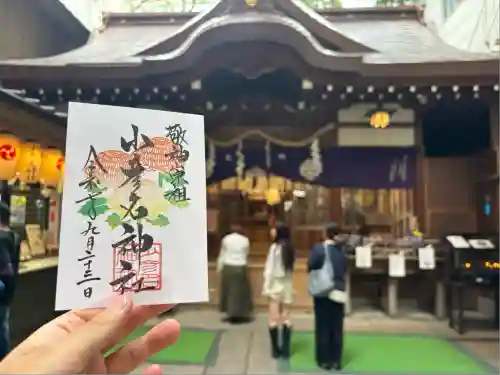 敬神崇祖
少彦名神社
令和 年九月二十三日